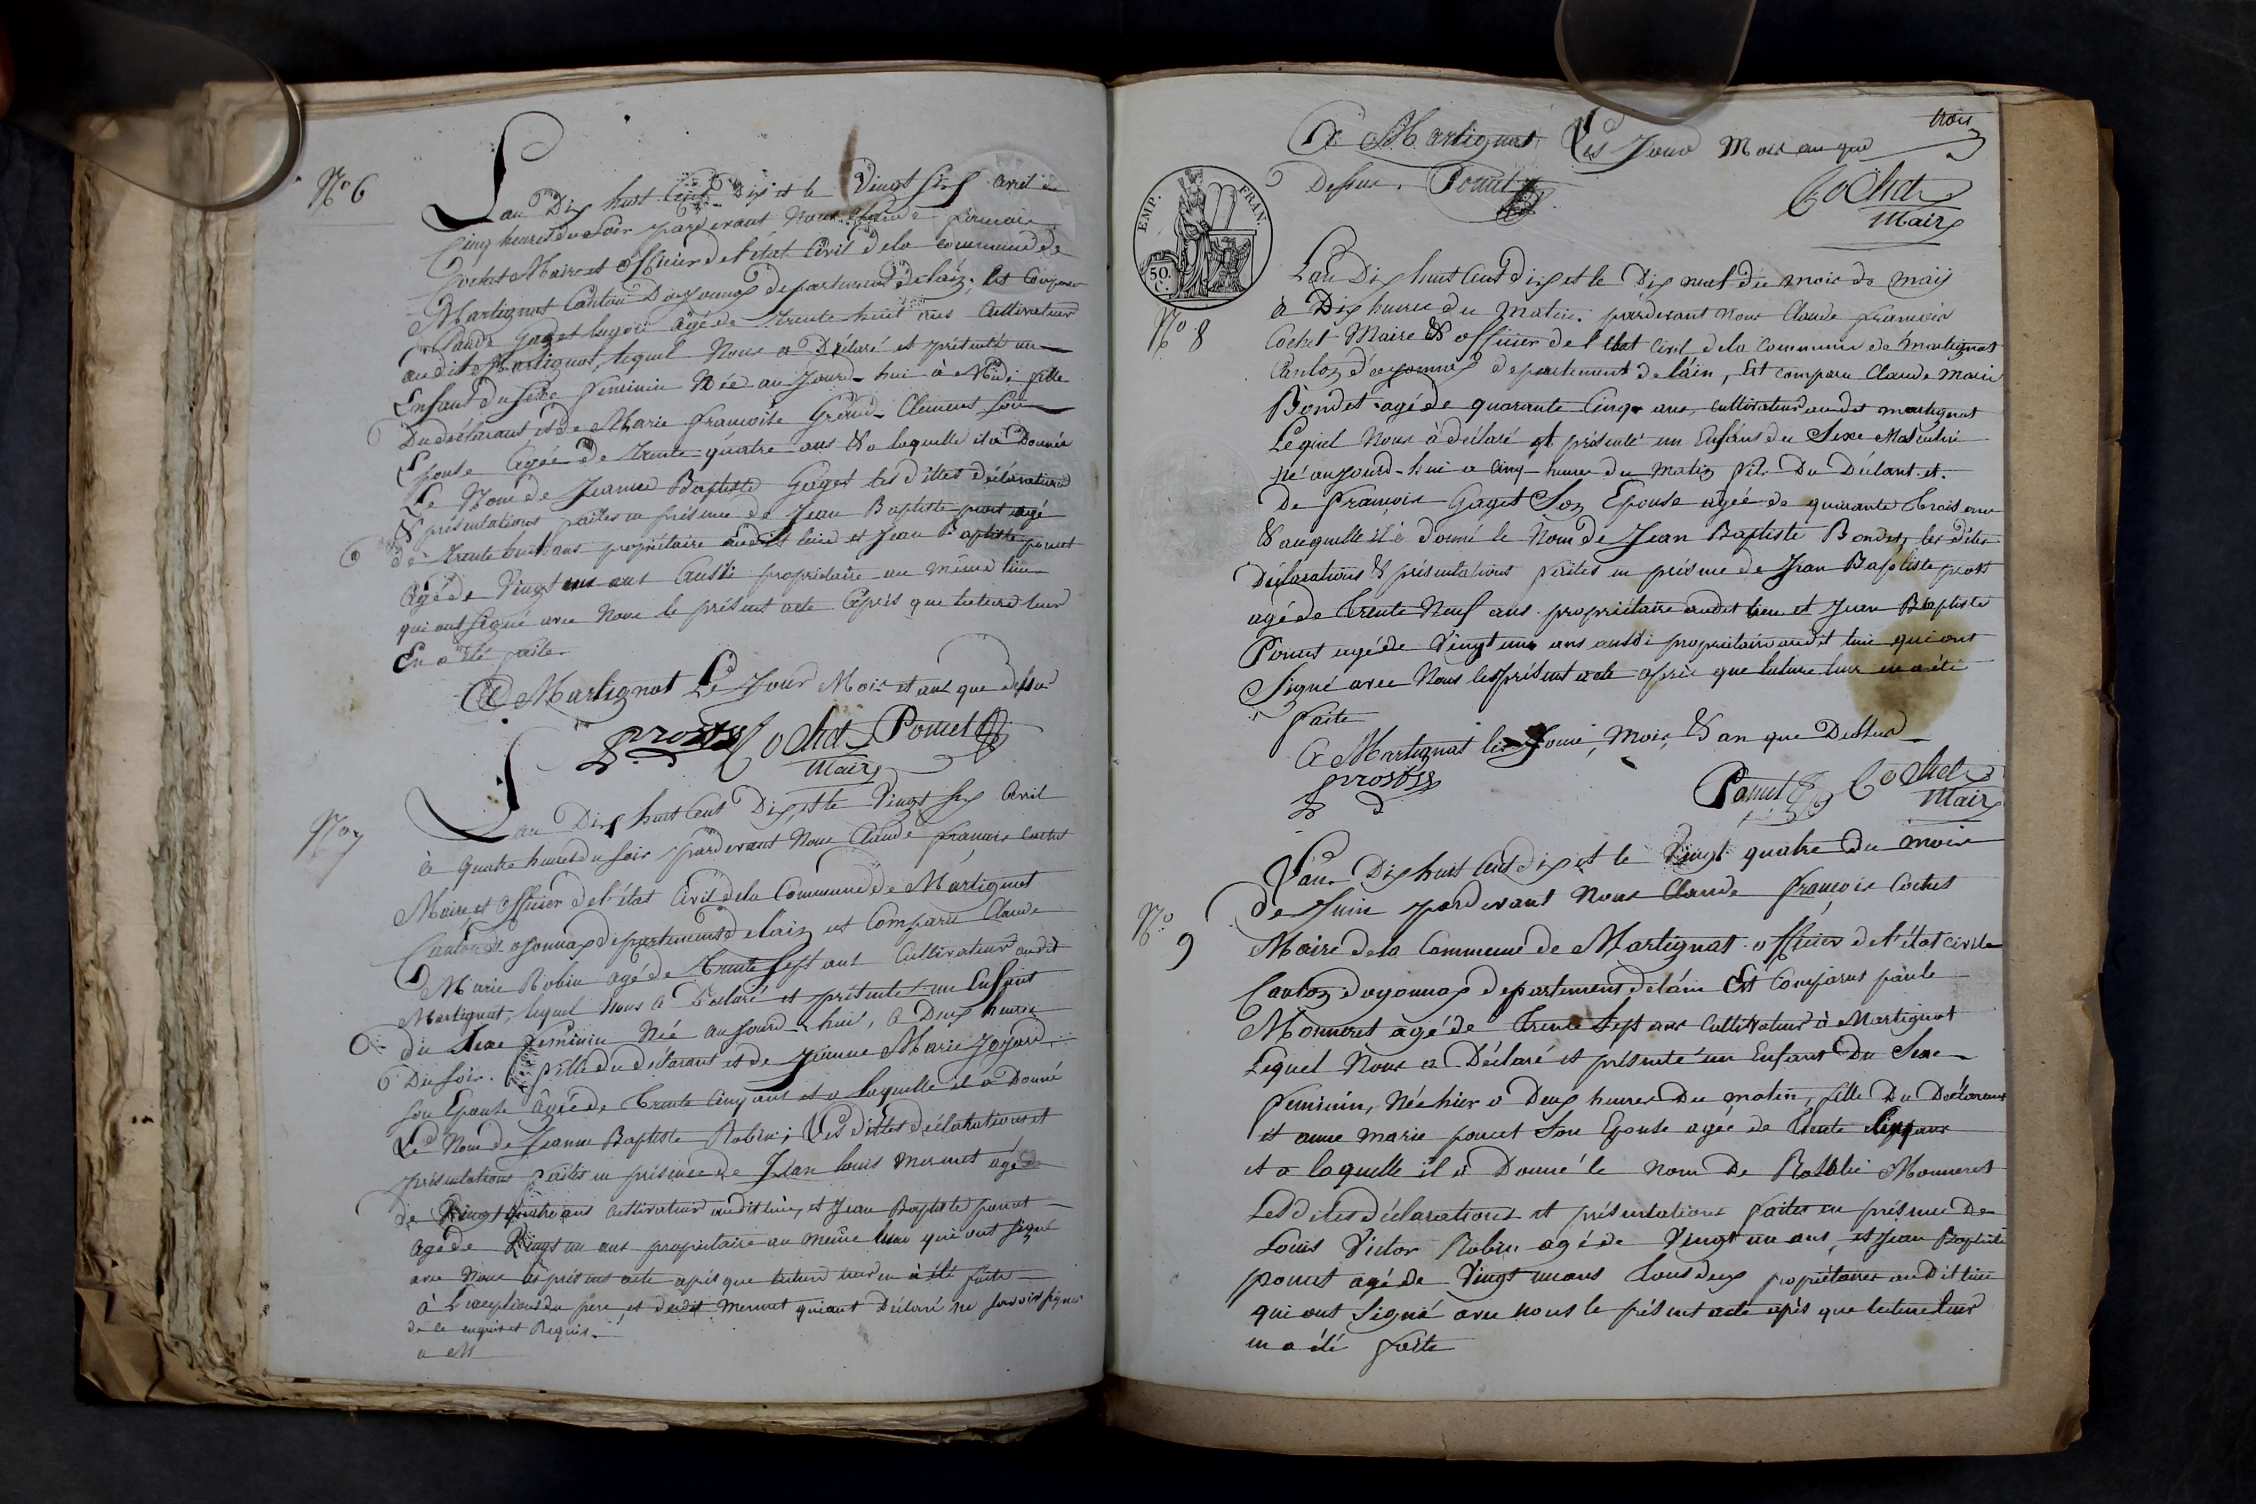 N.o 6
L'an Dix huit Cent Dix et le Vingt Six avril à
Cinq heures du Soir pardevant Nous Claude françois
Cochet Maire et officier de l'état Civil dela commune de
Martignat Canton D'oyonnax departement de lain, Est Comparu
Claude Gaget agé de trente huit ans Cultivateur
audit Martignat, lequel Nous a Déclaré et présenté un
Enfant du sexe feminin Née au Jourd-hui à Midi fille
Du déclarant et de Marie françoise Clement Son
Epouse Agée de trente quatre ans & a laquelle il a Donné
Le Nom de Jeanne Baptiste Gaget les dittes déclarations
& présentations faites en présence de Jean Baptiste prost agé
de trente huit ans propriétaire audit lieu et Jean Baptiste poncet
agé de Vingt un ans aussi propriétaire au même lieu
qui ont signé avec Nous le présent acte après que lecture leur
En a été faite
A Martignat Le Jour Mois et an que dessus
prost Cochet Poncet
Maire
N.o 7
L'an Dix huit Cent Dix, et le Vingt six avril
à quatre heures du soir pardevant Nous Claude françois cochet
Maire et officier de l'état Civil dela Commune de Martignat
Canton d'oyonnax departement de lain, est Comparu Claude
Marie Robin agé de trente sept ans Cultivateur audit
Martignat, lequel Nous a Déclaré et présenté un Enfant
du sexe feminin Née au Jourd-hui, à Deux heures
Du soir. fille du déclarant et de Jeanne Marie Joyard
son Epouse âgée de trente Cinq ans et a laquelle il a Donné
Le Nom de Jeanne Baptiste Robin; Les dittes déclarations et
présentations faites en présence de Jean louis mermet agé
de Vingt quatre ans cultivateur audit lieu, et Jean Baptiste poncet
agé de Vingt un ans propriétaire au même lieu qui ont signé
avec Nous le présent acte après que lecture leur en a été faite
à L'exception du pere, et dudit Mermet qui ont Déclaré ne savoir signer
de ce enquis et Requis.
a M
trois
A Martignat Les Jour Mois an que
Dessus. Poncet Cochet
Maire
EMP. FRAN.
50. C.
N.o 8
L'an Dix huit Cent dix et le Dix neuf du mois de may
à Dix heures du matin. pardevant nous Claude françois
Cochet Maire & officier de l'état Civil dela Commune de martignat
Canton d'oyonnax departement de láin, Est comparu Claude Marie
Bondet agé de quarante Cinq ans, cultivateur audit martignat
Lequel Nous à déclaré et présenté un Enfans du Sexe Masculin
né aujourd-hui a Cinq heures du Matin fils Du Déclant. et
De françoise Gaget Son Epouse agée de quarante trois ans
& auquelle il à donné le Nom de Jean Baptiste Bondet, les dites
Déclarations & présentations faites en présence de Jean Baptiste prost
agé de trente Neuf ans propriétaire audit lieu et Jean Baptiste
Poncet agé de Vingt un ans aussi propriétaire audit lieu qui ont
Signé avec Nous le présent acte après que lecture leur en a été
faite
A Martignat les Jour, Mois, & an que Dessus
prost Poncet Cochet
Maire
N.o 9
L'an Dix huit Cent dix et le Vingt quatre du mois
De Juin pardevant Nous Claude François Cochet
Maire dela Commune de Martignat officier de l'état civile
Canton d'oyonnax departement de láin Est Comparus paule
Monneret agé de trente sept ans Cultivateur à Martignat
Lequel Nous a Déclaré et présenté un Enfant Du Sexe
feminin, Née hier a Deux heures Du matin, fille Du Déclarant
et anne marie poncet Son Epouse agée de trente Cinq ans
et a laquelle il a Donné le nom De Rosalie Monneret
Les dites Déclarations et présentations faites en présence De
Louis Victor Robin agé de Vingt un ans, et Jean Baptiste
poncet agé de Vingt un ans tous deux propriétaires audit lieu
qui ont Signé avec nous le présent acte après que lecture leur
en a été faite